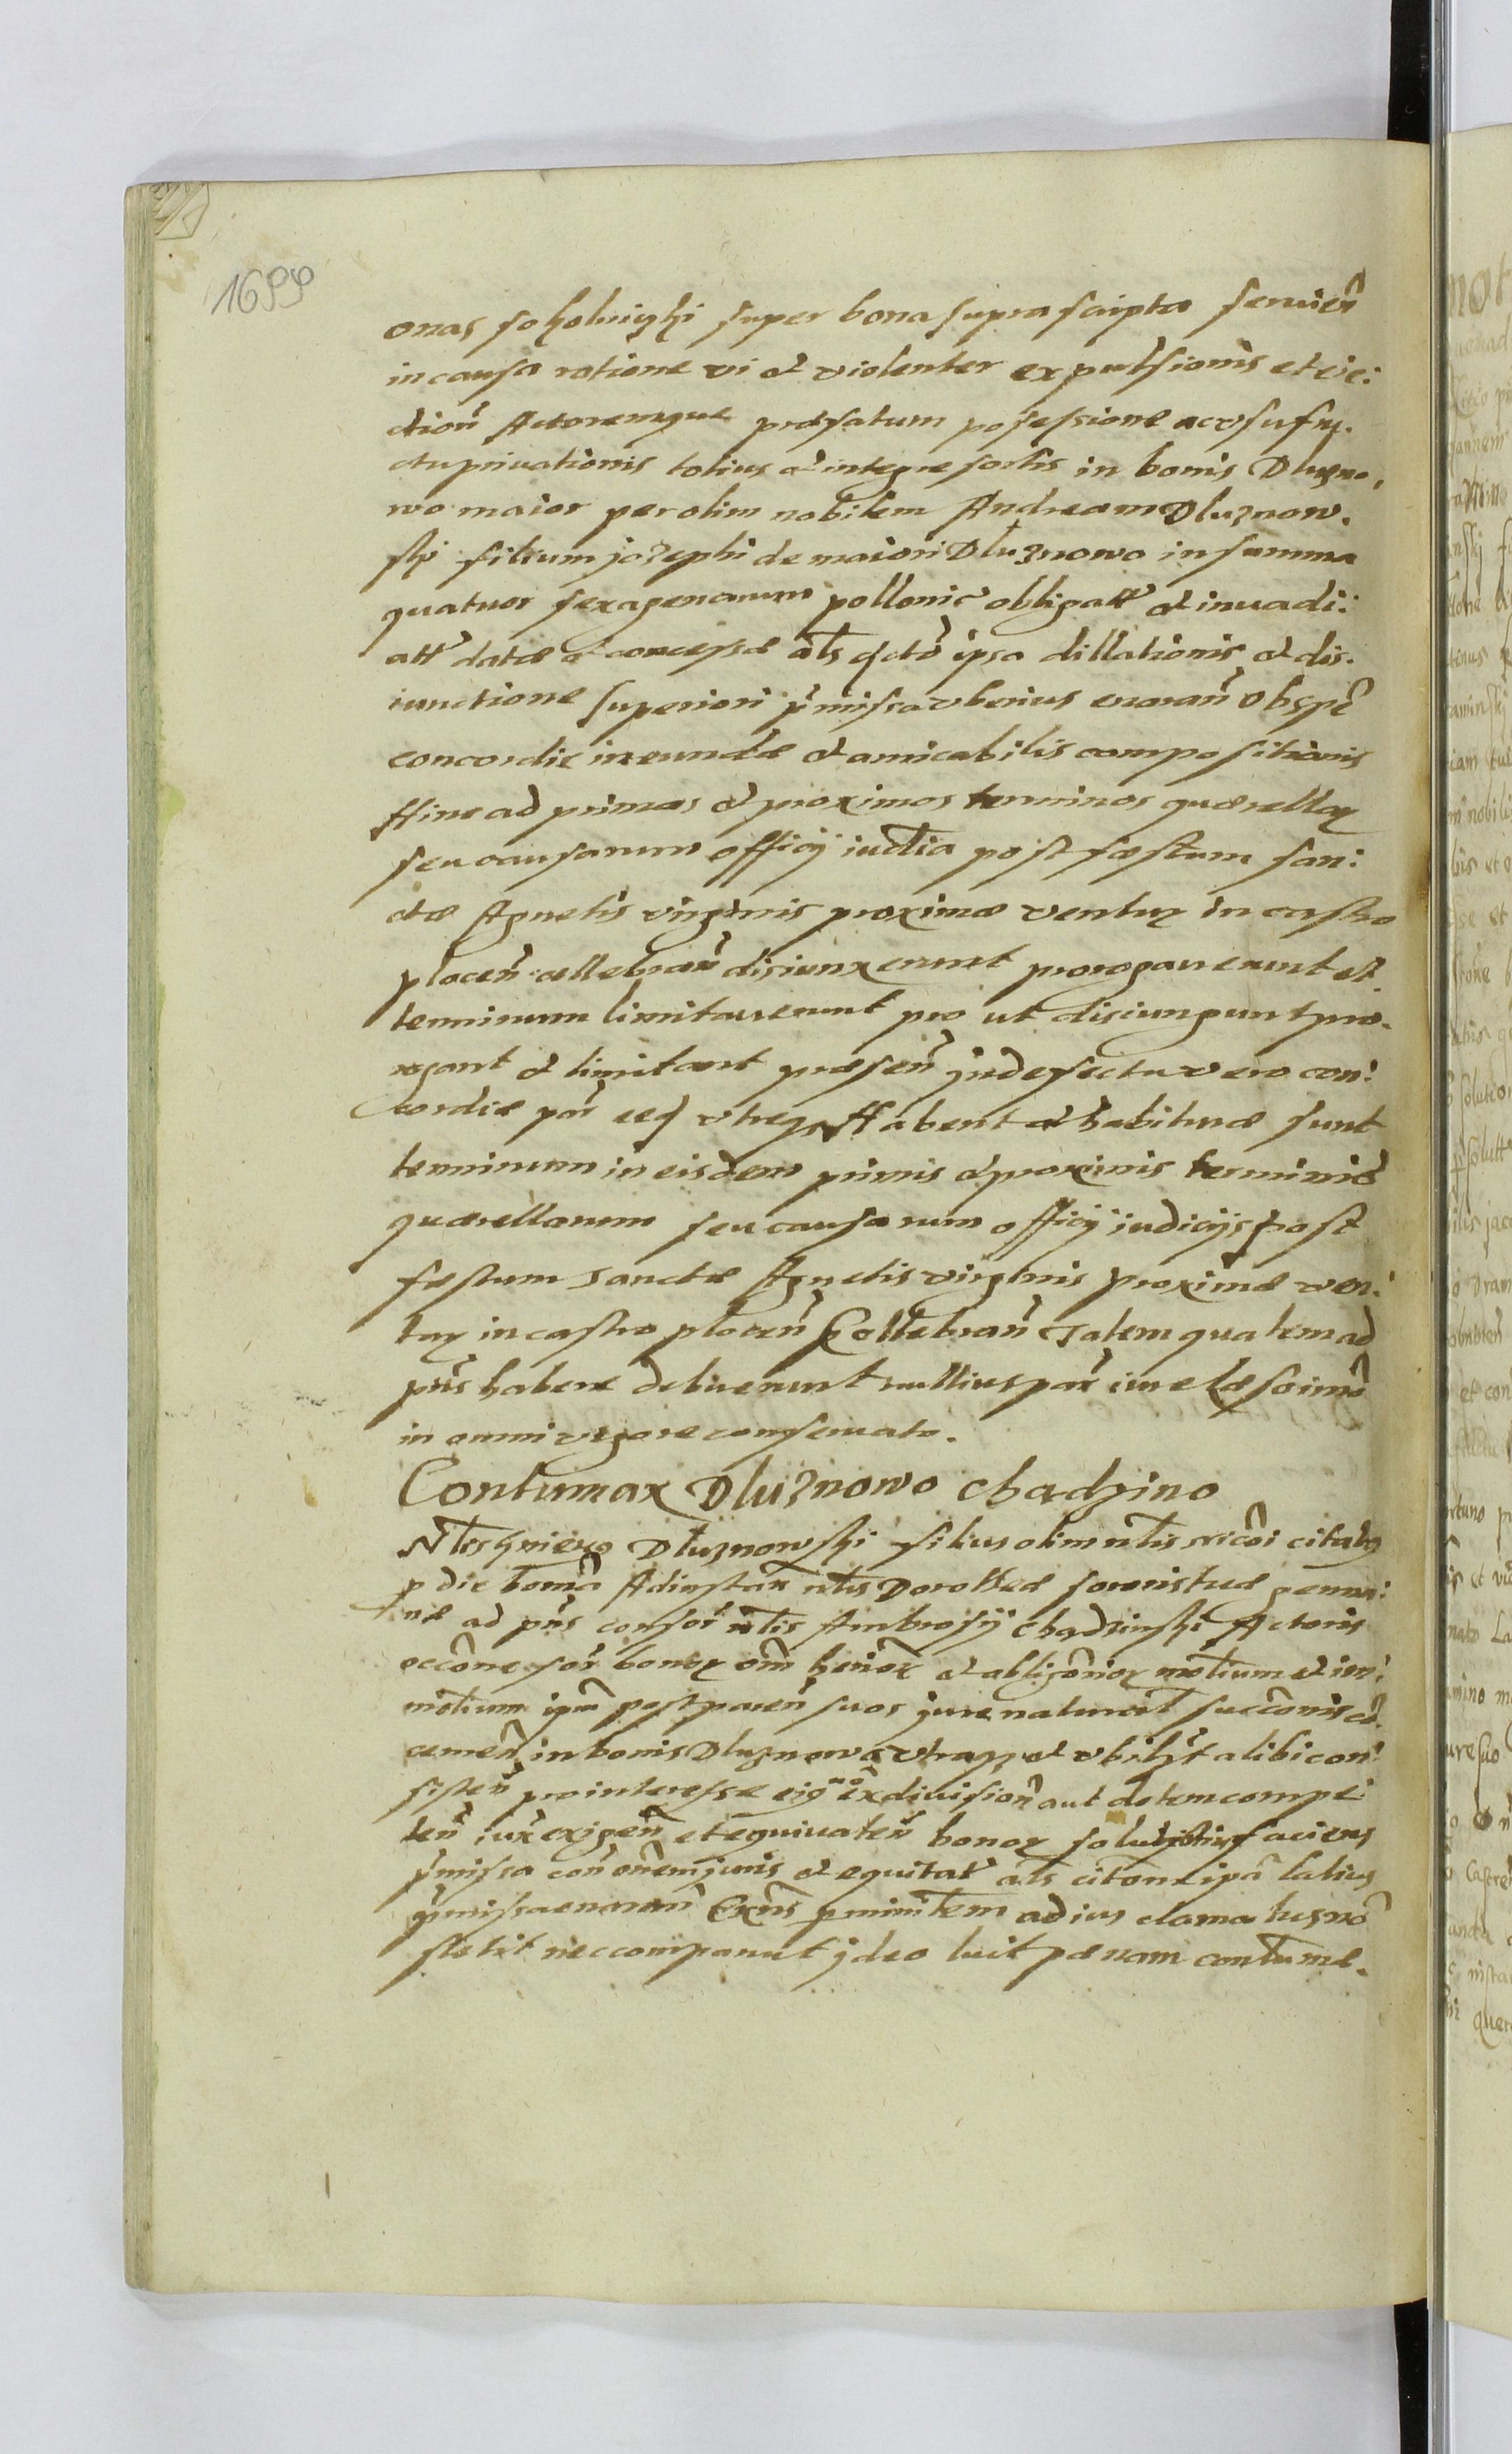 1699
onas sokolnighi super bona supra scripta servień
in causa ratione vi et violenter expulsionis et eie:
ction Actoremque præfatum possessione ac vsufru.
ctu privationis totius et integre sortis in bonis Dluzno,
wo maior per olim nobilem Andream Dluznow.
ski filium jozephi de maiori Dluznowo in summa
quatuor sexagenarum pollonic obligatt et inuadi:
att datæ et concessæ als acto ipsa dillationis et dis.
iunctione superiori p̃missa vberius enarań Obspẽ
concordiæ ineundæ et amicabilis compositionis
Hinc ad primos et proximos terminos quærellar
seu causarum officij iudlia post fæstum san:
ctæ Agnetis virginis proximæ ventur in castro
plocen̄ cellebran̄ disiunxerunt prorogaverunt et
terminum limitaverunt pro ut disiungunt pro.
rogant et limitant præsen̄ jn defectu vero con:
cordiæ par eed vtreq Habent et habituræ sunt
terminum in eisdem primis et proximis terminis
quærellarum seu causarum officij iudicijs post
fæstum sanctæ Agnetis virginis proximæ ven:
tur in castro plocen̄ Cellebran̄ Talem qualem ad
pñs habere debuerunt nullius par iure læso imo
in omni vigore conservato.
Contumax Dluznowo chadzino
Nlis Dluznowski filius olim nlis nicoi citatus
p die Adinstan̄ nlis Dorotheæ sororis tuæ germa:
næ ad pñs consor nlis Ambrosij chadzinski Actoris
occone sor bonor om̄ et obligonior molium et im:
molium ipm̄ post paren̄ suos jure naturali succonis co.
cernen̄ in bonis Dluznowo vtraq et vbilzt alibi con:
sisten̄ pro interesse eiq ex division̄ aut dotem compe:
ten̄ iur exigen̄ et equivalen̄ bonor solutionis faciens
p̃missa con̄ onem juris et equitat als citon ipa latius
p̃missa enaran̄ Exñs p minlem ad ius clamatus nõ
stetit nec comparuit jdeo luit pænam contuma.